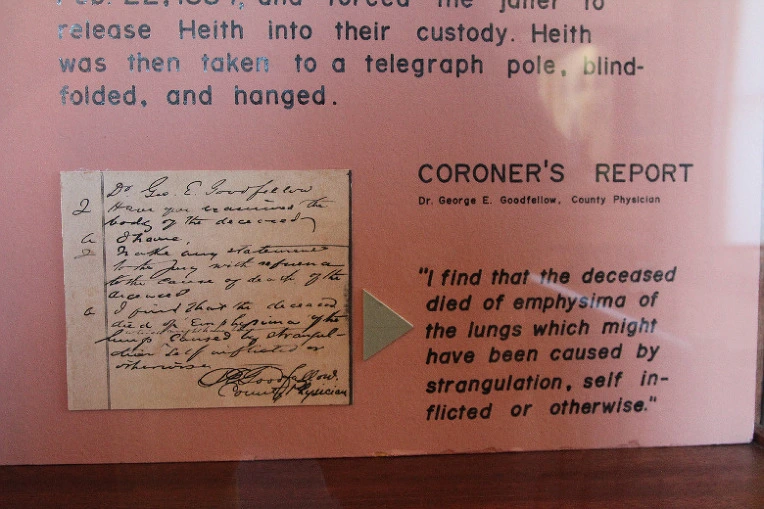 Feb. 22, 1884, and forced the jailer to
release Heith into their custody. Heith
was then taken to a telegraph pole, blind-
folded, and hanged.
Dr Geo. E. Goodfellow
Q Have you examined the
body of the deceased
a I have,
Q Make any statement
to the jury with reference
to the cause of death of the
deceased
a I find that the deceased
died of Emphysima of the
lungs caused by strangul-
ation self inflicted or
otherwise
Goodfellow.
County Physician
CORONER'S REPORT
Dr. George E. Goodfellow, County Physician
"I find that the deceased
died of emphysima of
the lungs which might
have been caused by
strangulation, self in-
flicted or otherwise."